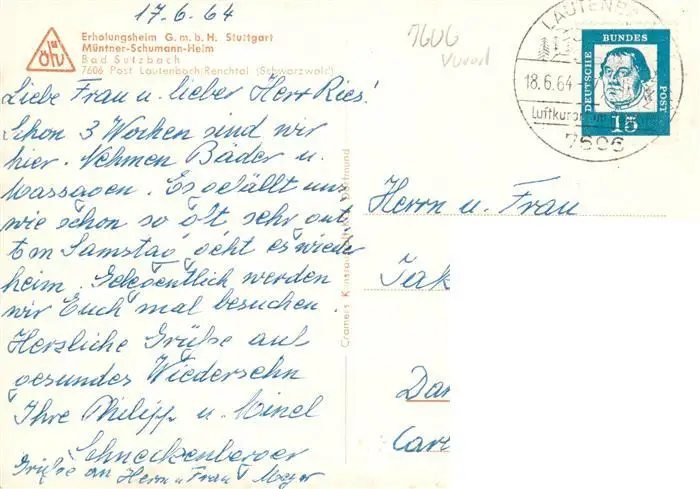 17.6.64
Erholungsheim G.m.b.H. Stuttgart
Müntner-Schumann-Heim
Bad Sulzbach
7606 Post Lautenbach/Renchtal (Schwarzwald)
Liebe Frau u. lieber Herr Ries!
Schon 3 Wochen sind wir
hier. Nehmen Bäder u.
Massagen. Es gefällt uns
wie schon so oft sehr gut
Am Samstag geht es wieder
heim. Gelegentlich werden
wir Euch mal besuchen.
Herzliche Grüße auf
gesundes Wiedersehn
Ihre Philipp u. Minel
Schneckenberger
Grüße an Herrn u Frau Mayer
Cramers Dortmund
7606
LAUTENBA
18.6.64
Luftkurort
7606
DEUTSCHE
BUNDES
POST
15
Herrn u. Frau
Jak
Dar
Carz